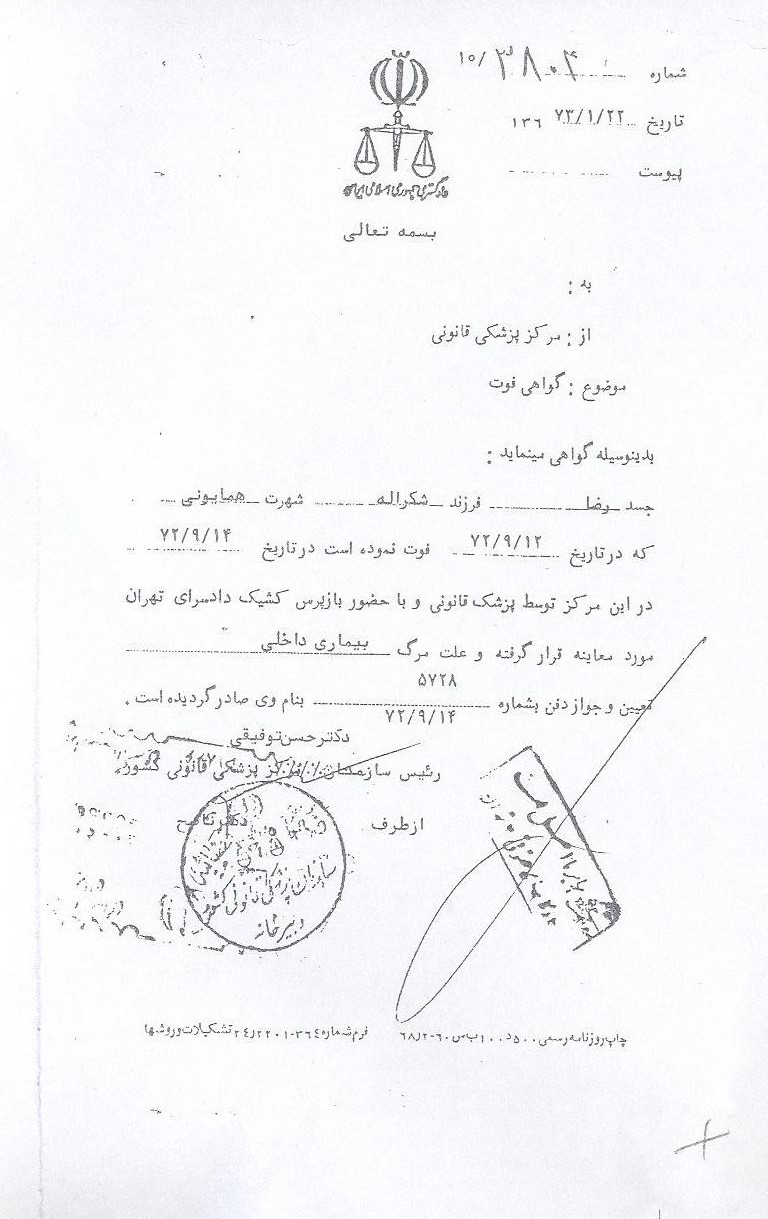 شماره ۱۵/۳۸۰۴
تاریخ ۷۳/۱/۲۲ ۱۳۶
پیوست
دادگستری جمهوری اسلامی ایران
بسمه تعالی
به :
از : مرکز پزشکی قانونی
موضوع : گواهی فوت
بدینوسیله گواهی مینماید :
جسد رضا فرزند شکراله شهرت همایونی
که در تاریخ ۷۲/۹/۱۲ فوت نموده است در تاریخ ۷۲/۹/۱۴
در این مرکز توسط پزشک قانونی و با حضور بازپرس کشیک دادسرای تهران
مورد معاینه قرار گرفته و علت مرگ بیماری داخلی
تعیین و جواز دفن بشماره ۵۷۲۸ ۷۲/۹/۱۴ بنام وی صادر گردیده است .
دکتر حسن توفیقی
رئیس سازمان پزشکی قانونی کشور
از طرف دکتر
سازمان پزشکی قانونی کشور
دبیرخانه
چاپ روزنامه رسمی
فرم شماره تشکیلات و روشها